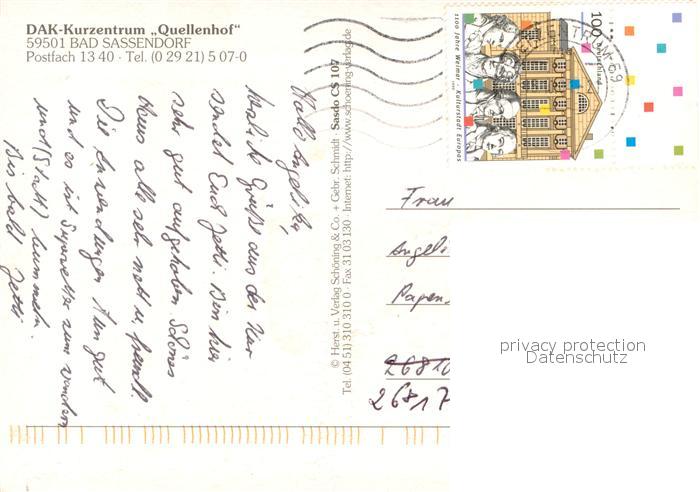 DAK-Kurzentrum „Quellenhof“
59501 BAD SASSENDORF
Postfach 13 40 · Tel. (0 29 21) 5 07-0
Hallo Angelika,
herzliche Grüße aus der Kur
sendet Euch Jetti. Bin hier
sehr gut aufgehoben. Schönes
Haus alles sehr nett u. freundl.
Die Anwendungen tun gut
und es ist Superwetter zum wandern
und (Stadt) bummeln.
Bis bald Jetti
© Herst. u. Verlag Schöning & Co. + Gebr. Schmidt · Sasdo CS 107
Tel. (04 51) 310 310 0 · Fax 31 03 130 · Internet: http://www.schoening-verlag.de
1100 Jahre Weimar · Kulturstadt Europas
100
Deutschland
1999
Frau
Angeli
Papen
26810
26817
privacy protection
Datenschutz